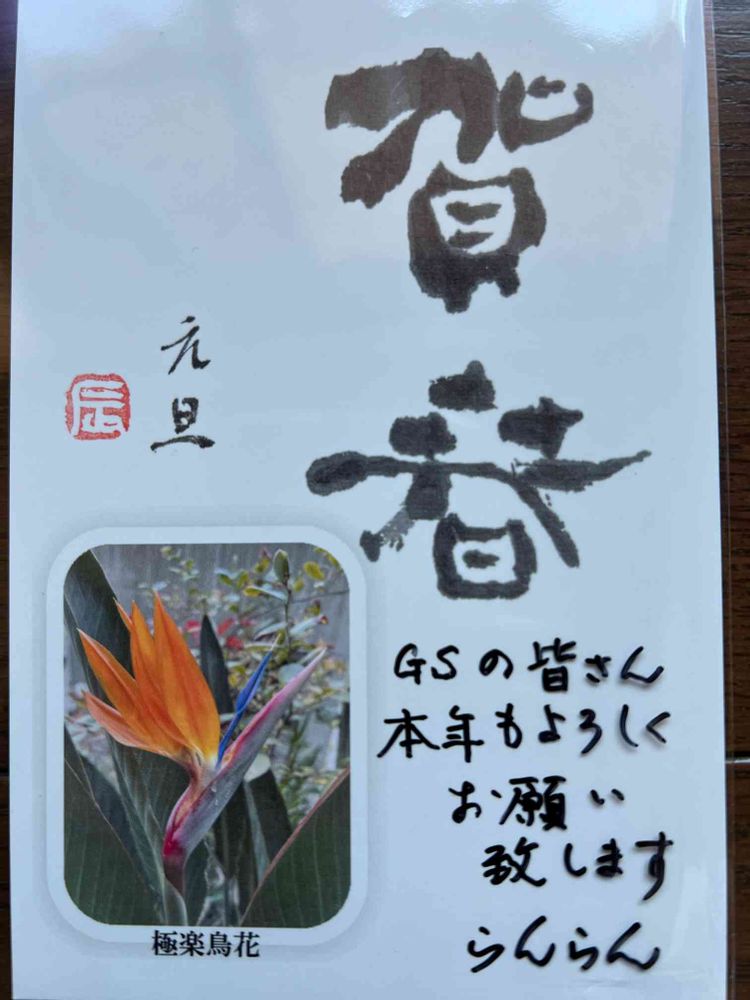 賀春
元旦
辰
GSの皆さん
本年もよろしく
お願い
致します
らんらん
極楽鳥花